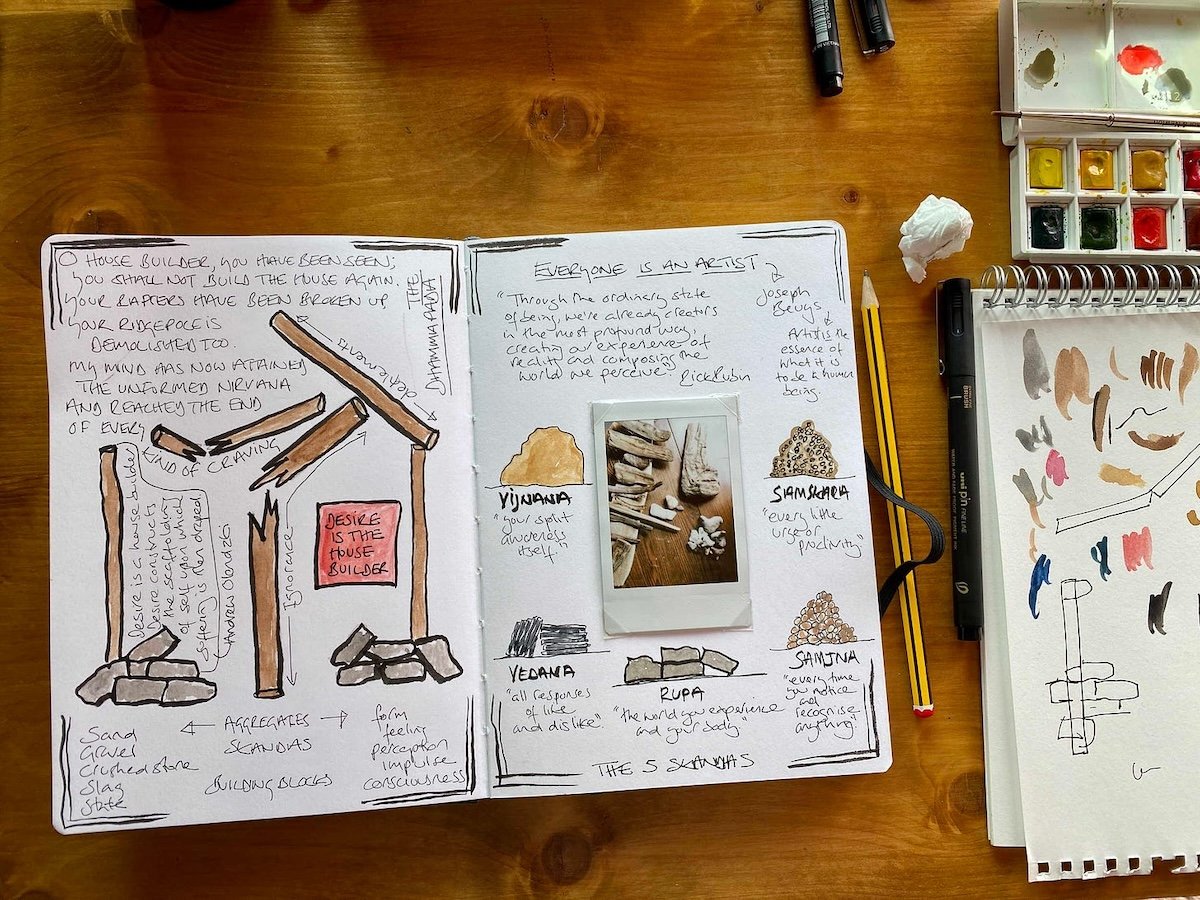 O HOUSE BUILDER, YOU HAVE BEEN SEEN;
YOU SHALL NOT BUILD THE HOUSE AGAIN.
YOUR RAFTERS HAVE BEEN BROKEN UP
YOUR RIDGEPOLE IS
DEMOLISHED TOO.
MY MIND HAS NOW ATTAINED
THE UNFORMED NIRVANA
AND REACHED THE END
OF EVERY
KIND OF CRAVING
THE
DHAMMAPADA
defilements
Desire is a house builder
Desire constructs
the scaffolding
of self upon which
suffering is then draped
Andrew Olendzki
Ignorance
DESIRE
IS THE
HOUSE
BUILDER
Sand
Gravel
Crushed stone
Slag
AGGREGATES
SKANDAS
BUILDING BLOCKS
form
feeling
perception
impulse
consciousness
EVERYONE IS AN ARTIST
Joseph
Beuys
Artist is the
essence of
what it is
to be a human
being.
"Through the ordinary state
of being, we're already creators
in the most profound way,
creating our experience of
reality and composing the
world we perceive.
Rick Rubin
VIJNANA
"your split
awareness
itself."
SAMSKARA
"every little
urge or
proclivity"
VEDANA
"all responses
of like
and dislike".
RUPA
"the world you experience
and your body"
SAMJNA
"every time
you notice
and
recognise
anything"
THE 5 SKANDAS
BRUSH
uni pin FINE LINE